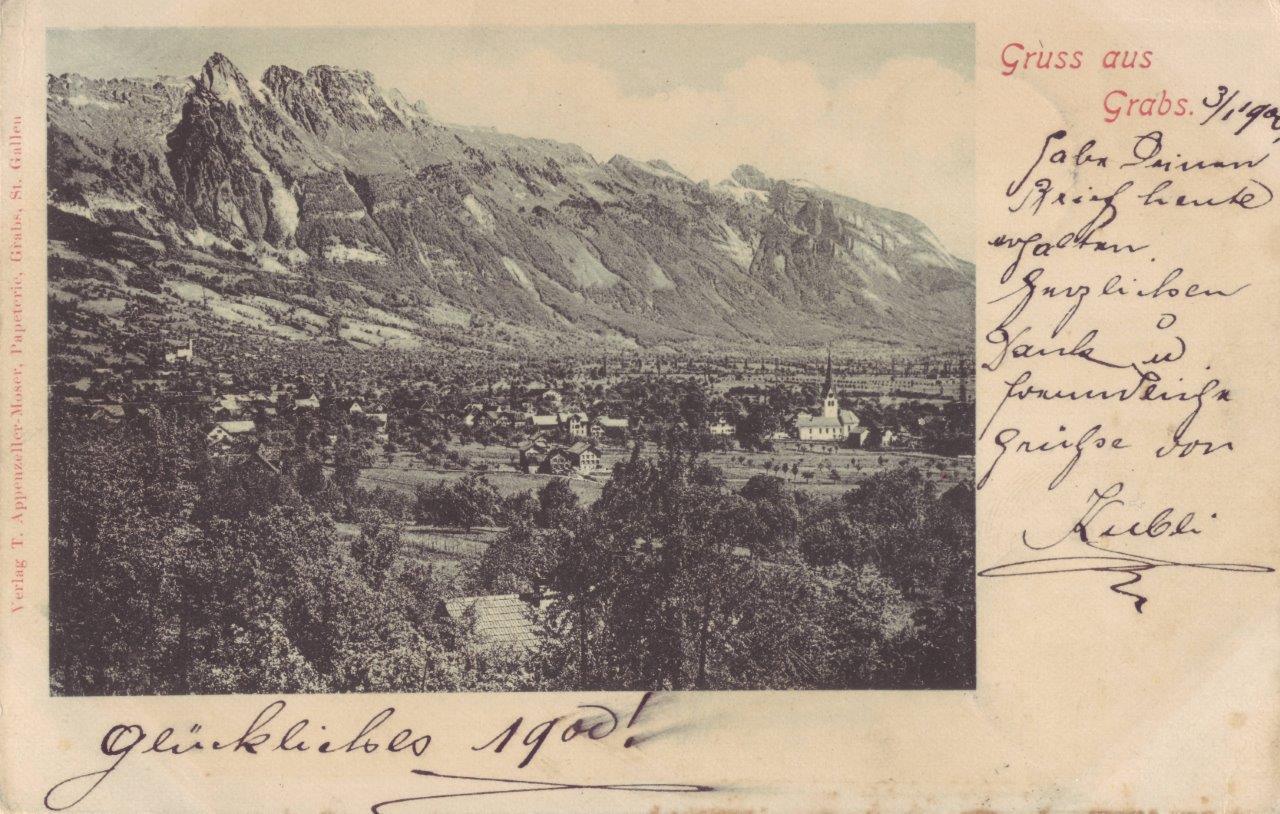 Gruss aus
Grabs.
3/1 1900
Habe Deinen
Brief heute
erhalten.
Herzlichen
Dank u
freundliche
Grüsse von
Kubli
Glückliches 1900!
Verlag T. Appenzeller-Moser, Papeterie, Grabs, St. Gallen